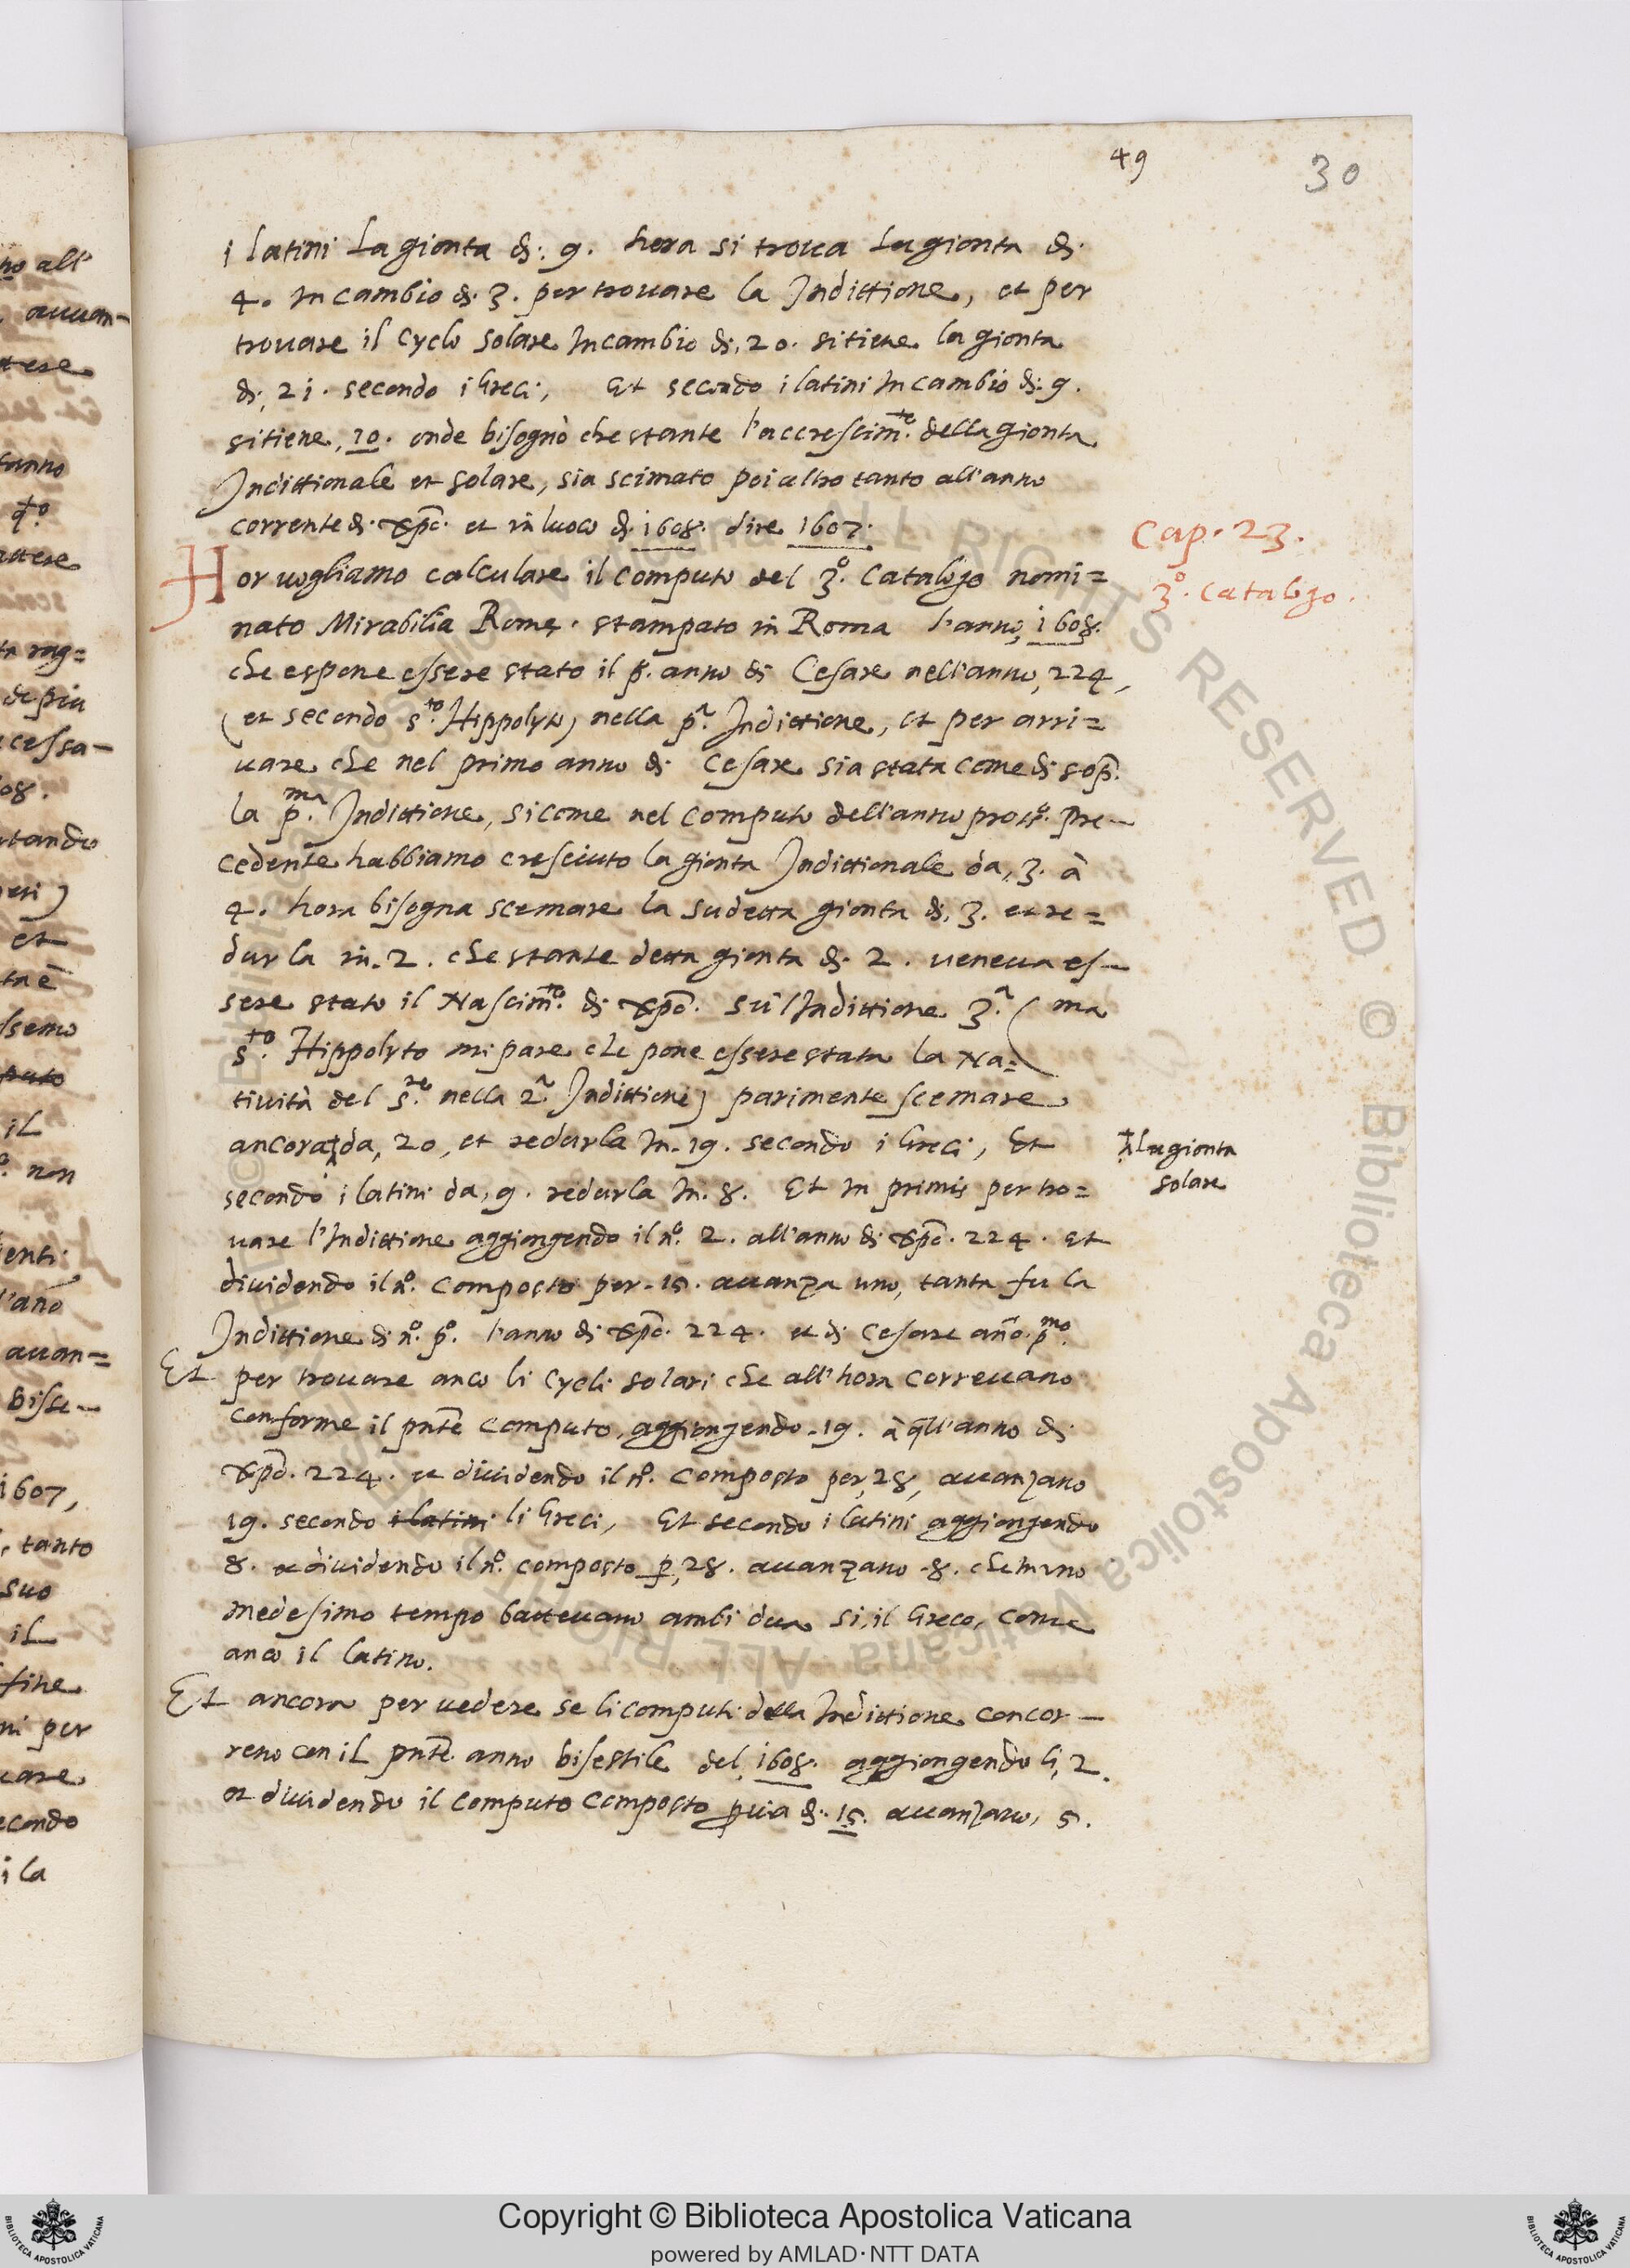 49
30
i latini la gionta di. 9. hora si troua la gionta di
4. in cambio di. 3. per trouare la Indittione, et per
trouare il Cyclo Solare in cambio di, 20. si tiene la gionta
di, 21. secondo i Greci, Et secondo i latini in cambio di. 9.
si tiene, 10. onde bisognò che stante l'accrescim.to della gionta
Indittionale et solare, sia scimato poi altro tanto all'anno
corrente di xp̄o. et in luoco di 1608. dire 1607.
Cap. 23.
3.o Catalogo.
Hor uogliamo calculare il computo del 3.o Catalogo nomi=
nato Mirabilia Romę. stampato in Roma l'anno, 1608.
che espone essere stato il p.o anno di Cesare nell'anno, 224,
(et secondo s.to Hippolyto) nella p.a Indittione, et per arri=
uare che nel primo anno di Cesare sia stata come di sop.a
la p.ma Indittione, si come nel computo dell'anno pross.o pre-
cedente habbiamo cresciuto la gionta Indittionale da, 3. à
4. hora bisogna scemare la sudetta gionta di, 3. et re=
durla in. 2. che stante detta gionta di 2. ueneua es-
sere stato il Nascim.to di xp̄o. sù l'Indittione 3.a (ma
s.to Hippolyto mi pare che pone essere stata la Na=
tiuità del S.re nella 2.a Indittione) parimente scemare
ancora da, 20, et redurla in. 19. secondo i Greci, Et
la gionta
solare
secondo i latini da, 9. redurla in. 8. Et in primis per tro=
uare l'Indittione aggiongendo il n.o 2. all'anno di xp̄o. 224. et
diuidendo il n.o composto per. 15. auanza uno, tanta fu la
Indittione di n.o p.o l'anno di xp̄o. 224. et di Cesare año. p.mo
Et per trouare anco li Cycli solari che all'hora correuano
conforme il pn̄te computo, aggiongendo. 19. à q̄ll'anno di
xp̄o. 224. et diuidendo il n.o composto per, 28, auanzano
19. secondo i latini li Greci, Et secondo i latini aggiongendo
8. et diuidendo il n.o composto p, 28. auanzano. 8. che in uno
medesimo tempo batteuano ambi dua si, il Greco, come
anco il latino.
Et ancora per uedere se li computi della Indittione concor-
reno con il pn̄te anno bisestile del, 1608. aggiongendo li, 2.
et diuidendo il computo composto p uia di. 15. auanzano, 5.
Copyright © Biblioteca Apostolica Vaticana
powered by AMLAD·NTT DATA